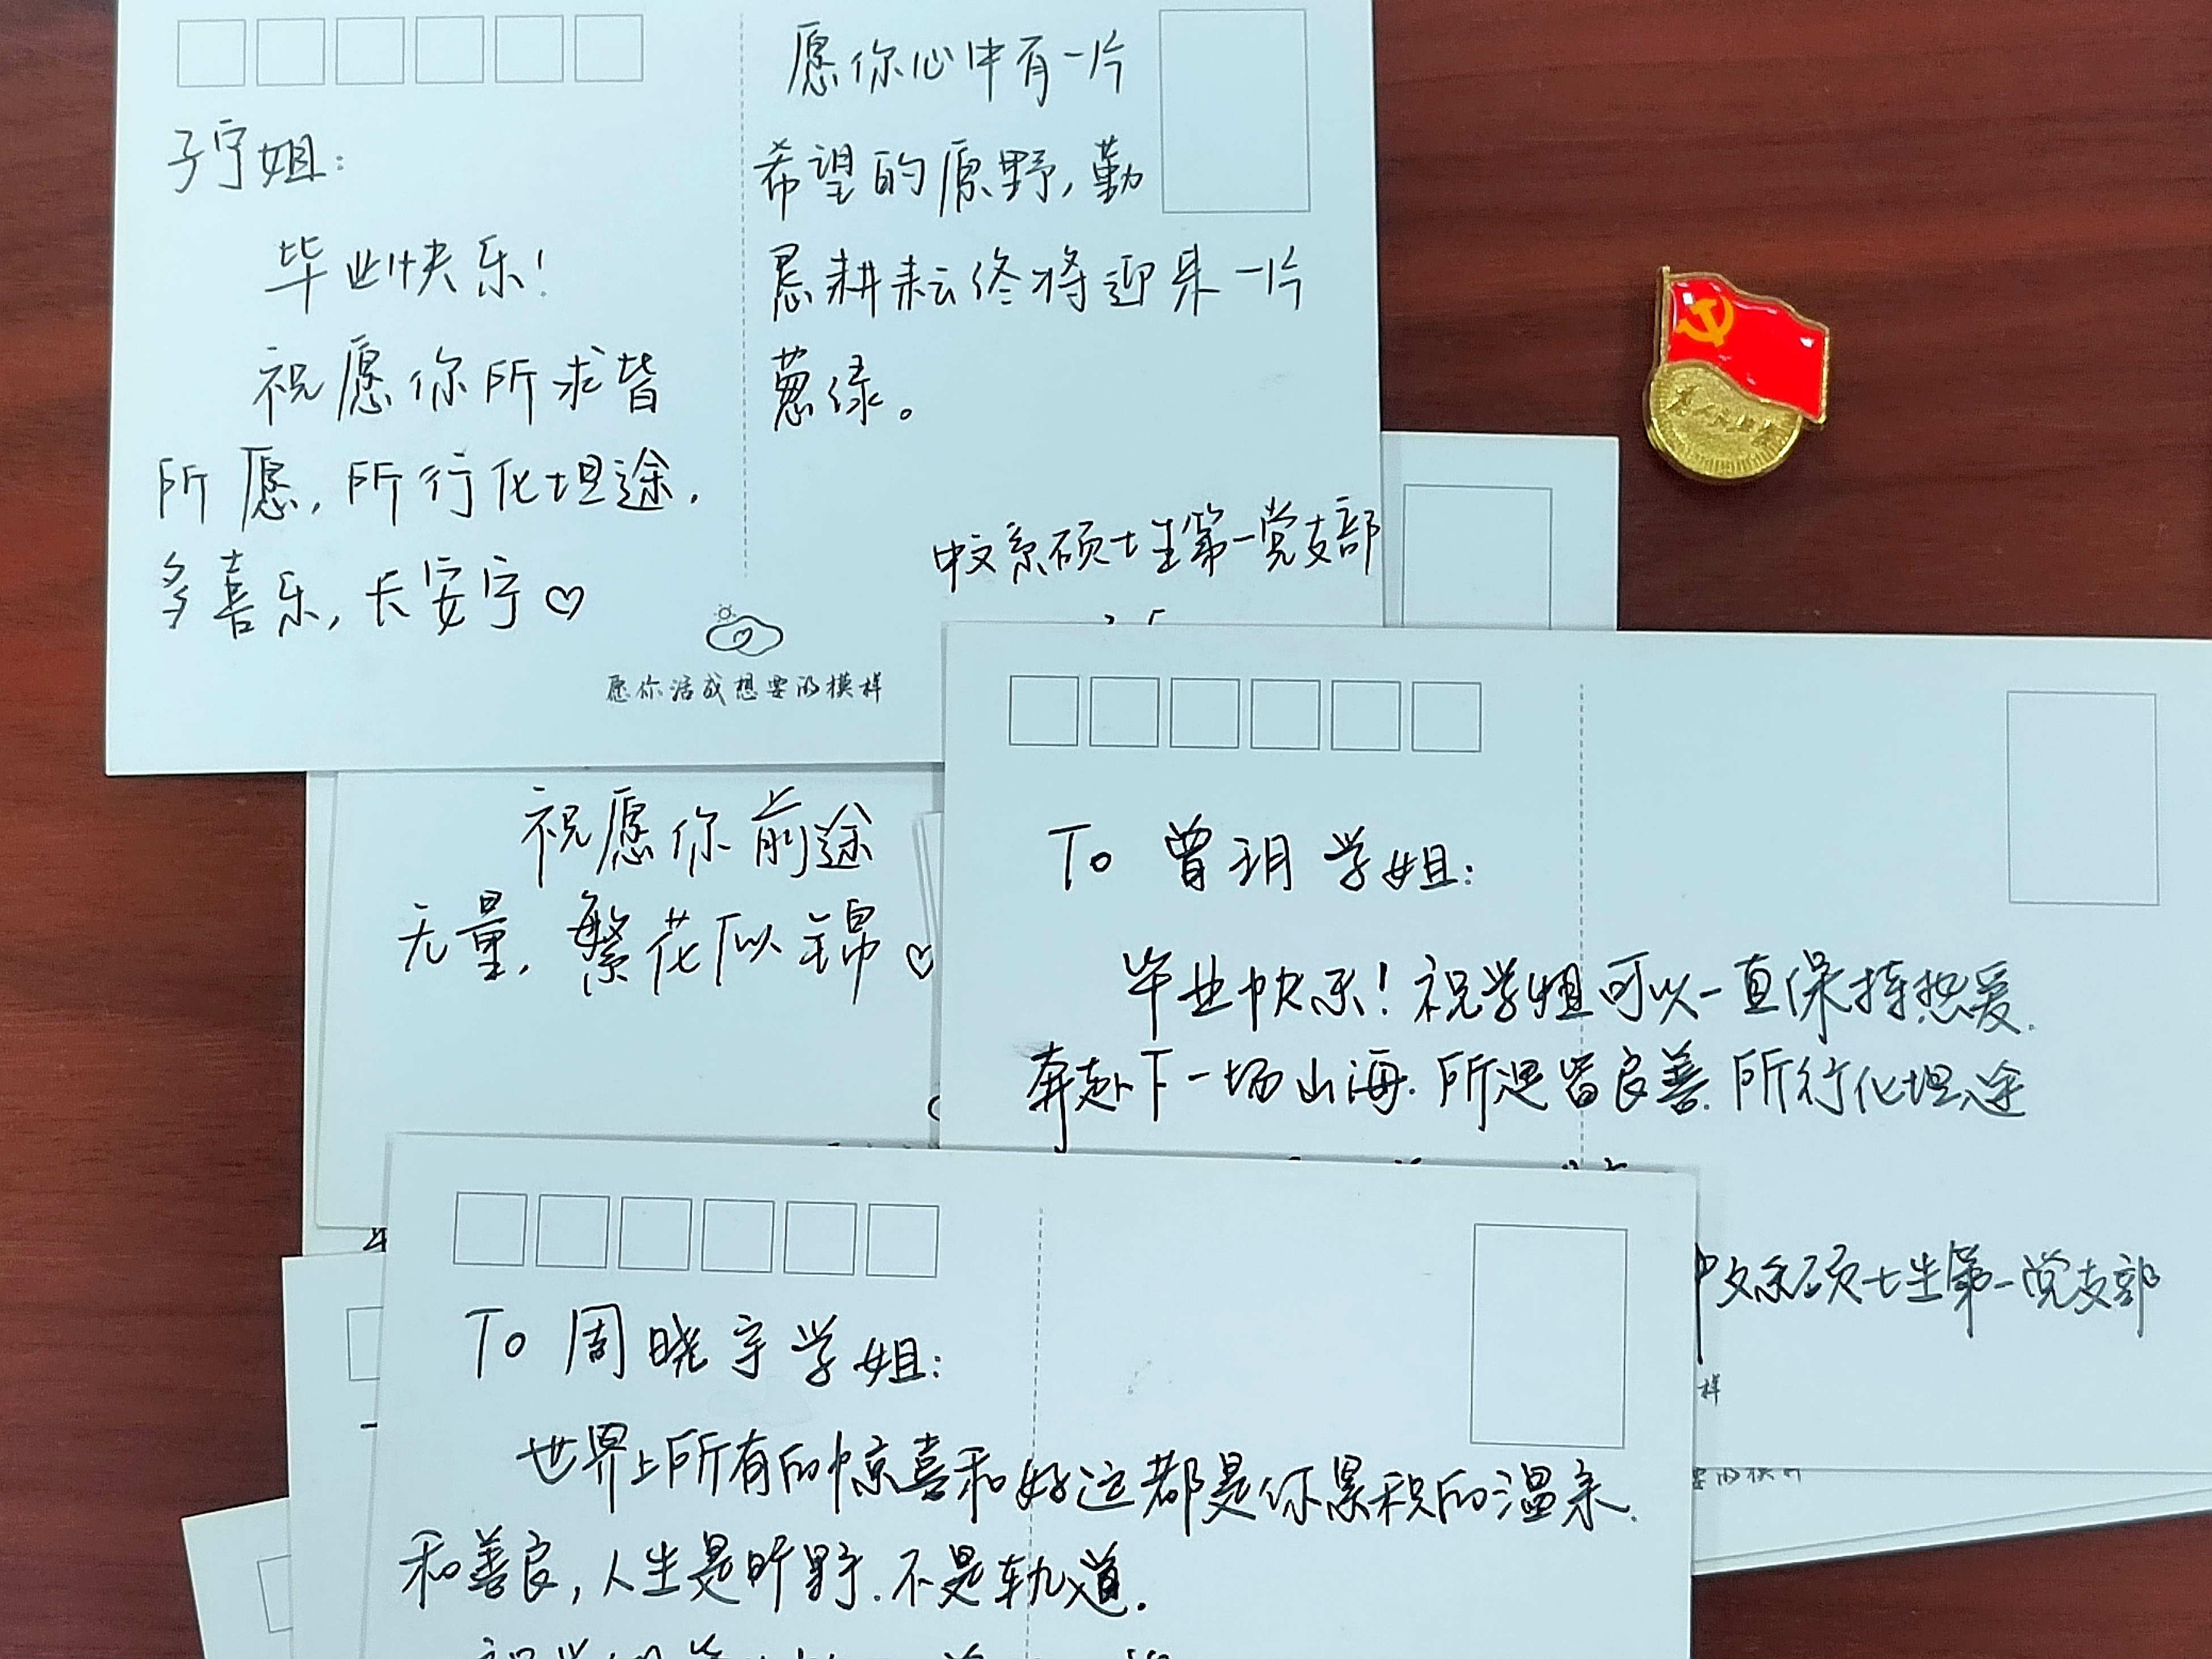 子宁姐:
毕业快乐!
祝愿你所求皆
所愿,所行化坦途,
多喜乐,长安宁♡
愿你心中有一片
希望的原野,勤
恳耕耘终将迎来一片
葱绿。
中文系硕士生第一党支部
愿你活成想要的模样
祝愿你前途
无量,繁花似锦♡
To 曾玥学姐:
毕业快乐!祝学姐可以一直保持热爱,
奔赴下一场山海.所遇皆良善.所行化坦途
中文系硕士生第一党支部
样
To 周晓宇学姐:
世界上所有的惊喜和好运都是你累积的温柔
和善良,人生是旷野.不是轨道.